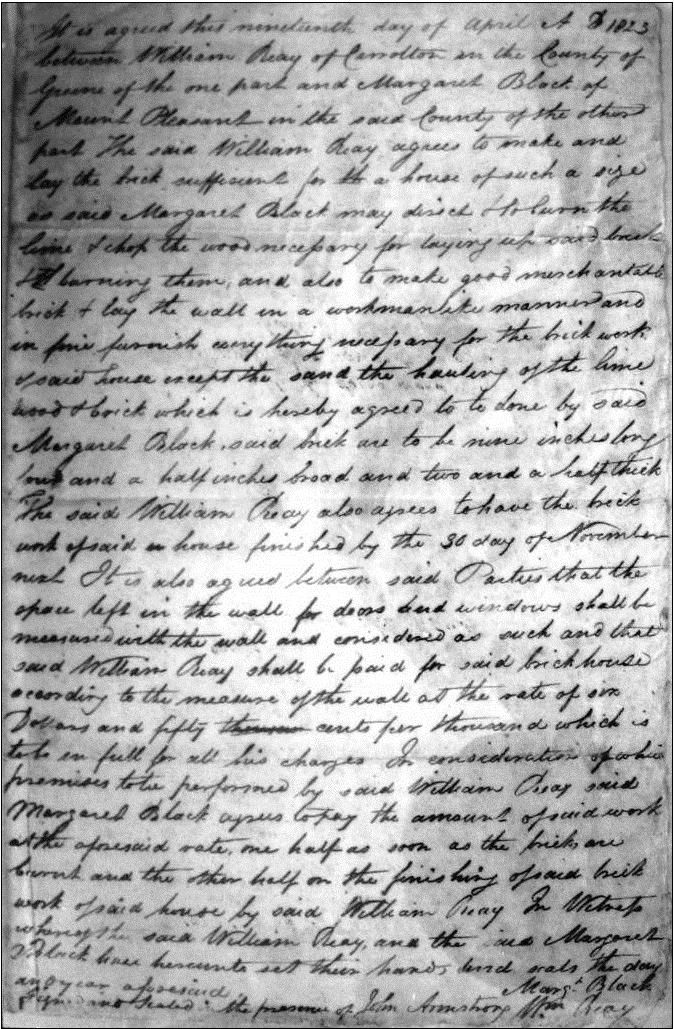 It is agreed this nineteenth day of April A D 1823
between William Reay of Carrolton in the County of
Greene of the one part and Margaret Black of
Mount Pleasant in the said County of the other
part The said William Reay agrees to make and
lay the brick sufficient for a house of such a size
as said Margaret Black may direct & to burn the
lime & chop the wood necessary for laying up said brick
& burning them, and also to make good merchantable
brick & lay the wall in a workmanlike manner and
in fine furnish everything necessary for the brick work
of said house except the sand the hauling of the lime
wood & brick which is hereby agreed to be done by said
Margaret Black, said brick are to be nine inches long
four and a half inches broad and two and a half thick
The said William Reay also agrees to have the brick
work of said house finished by the 30 day of November
next It is also agreed between said Parties that the
space left in the wall for doors and windows shall be
measured with the wall and considered as such and that
said William Reay shall be paid for said brick house
according to the measure of the wall at the rate of six
Dollars and fifty cents per thousand which is
to be in full for all his charges In consideration of which
premises to be performed by said William Reay said
Margaret Black agrees to pay the amount of said work
at the aforesaid rate, one half as soon as the brick are
burnt and the other half on the finishing of said brick
work of said house by said William Reay In Witness
whereof the said William Reay, and the said Margaret
Black have hereunto set their hands and seals the day
and year aforesaid Margt Black
Signed and Sealed in the presence of John Armstrong Wm Reay